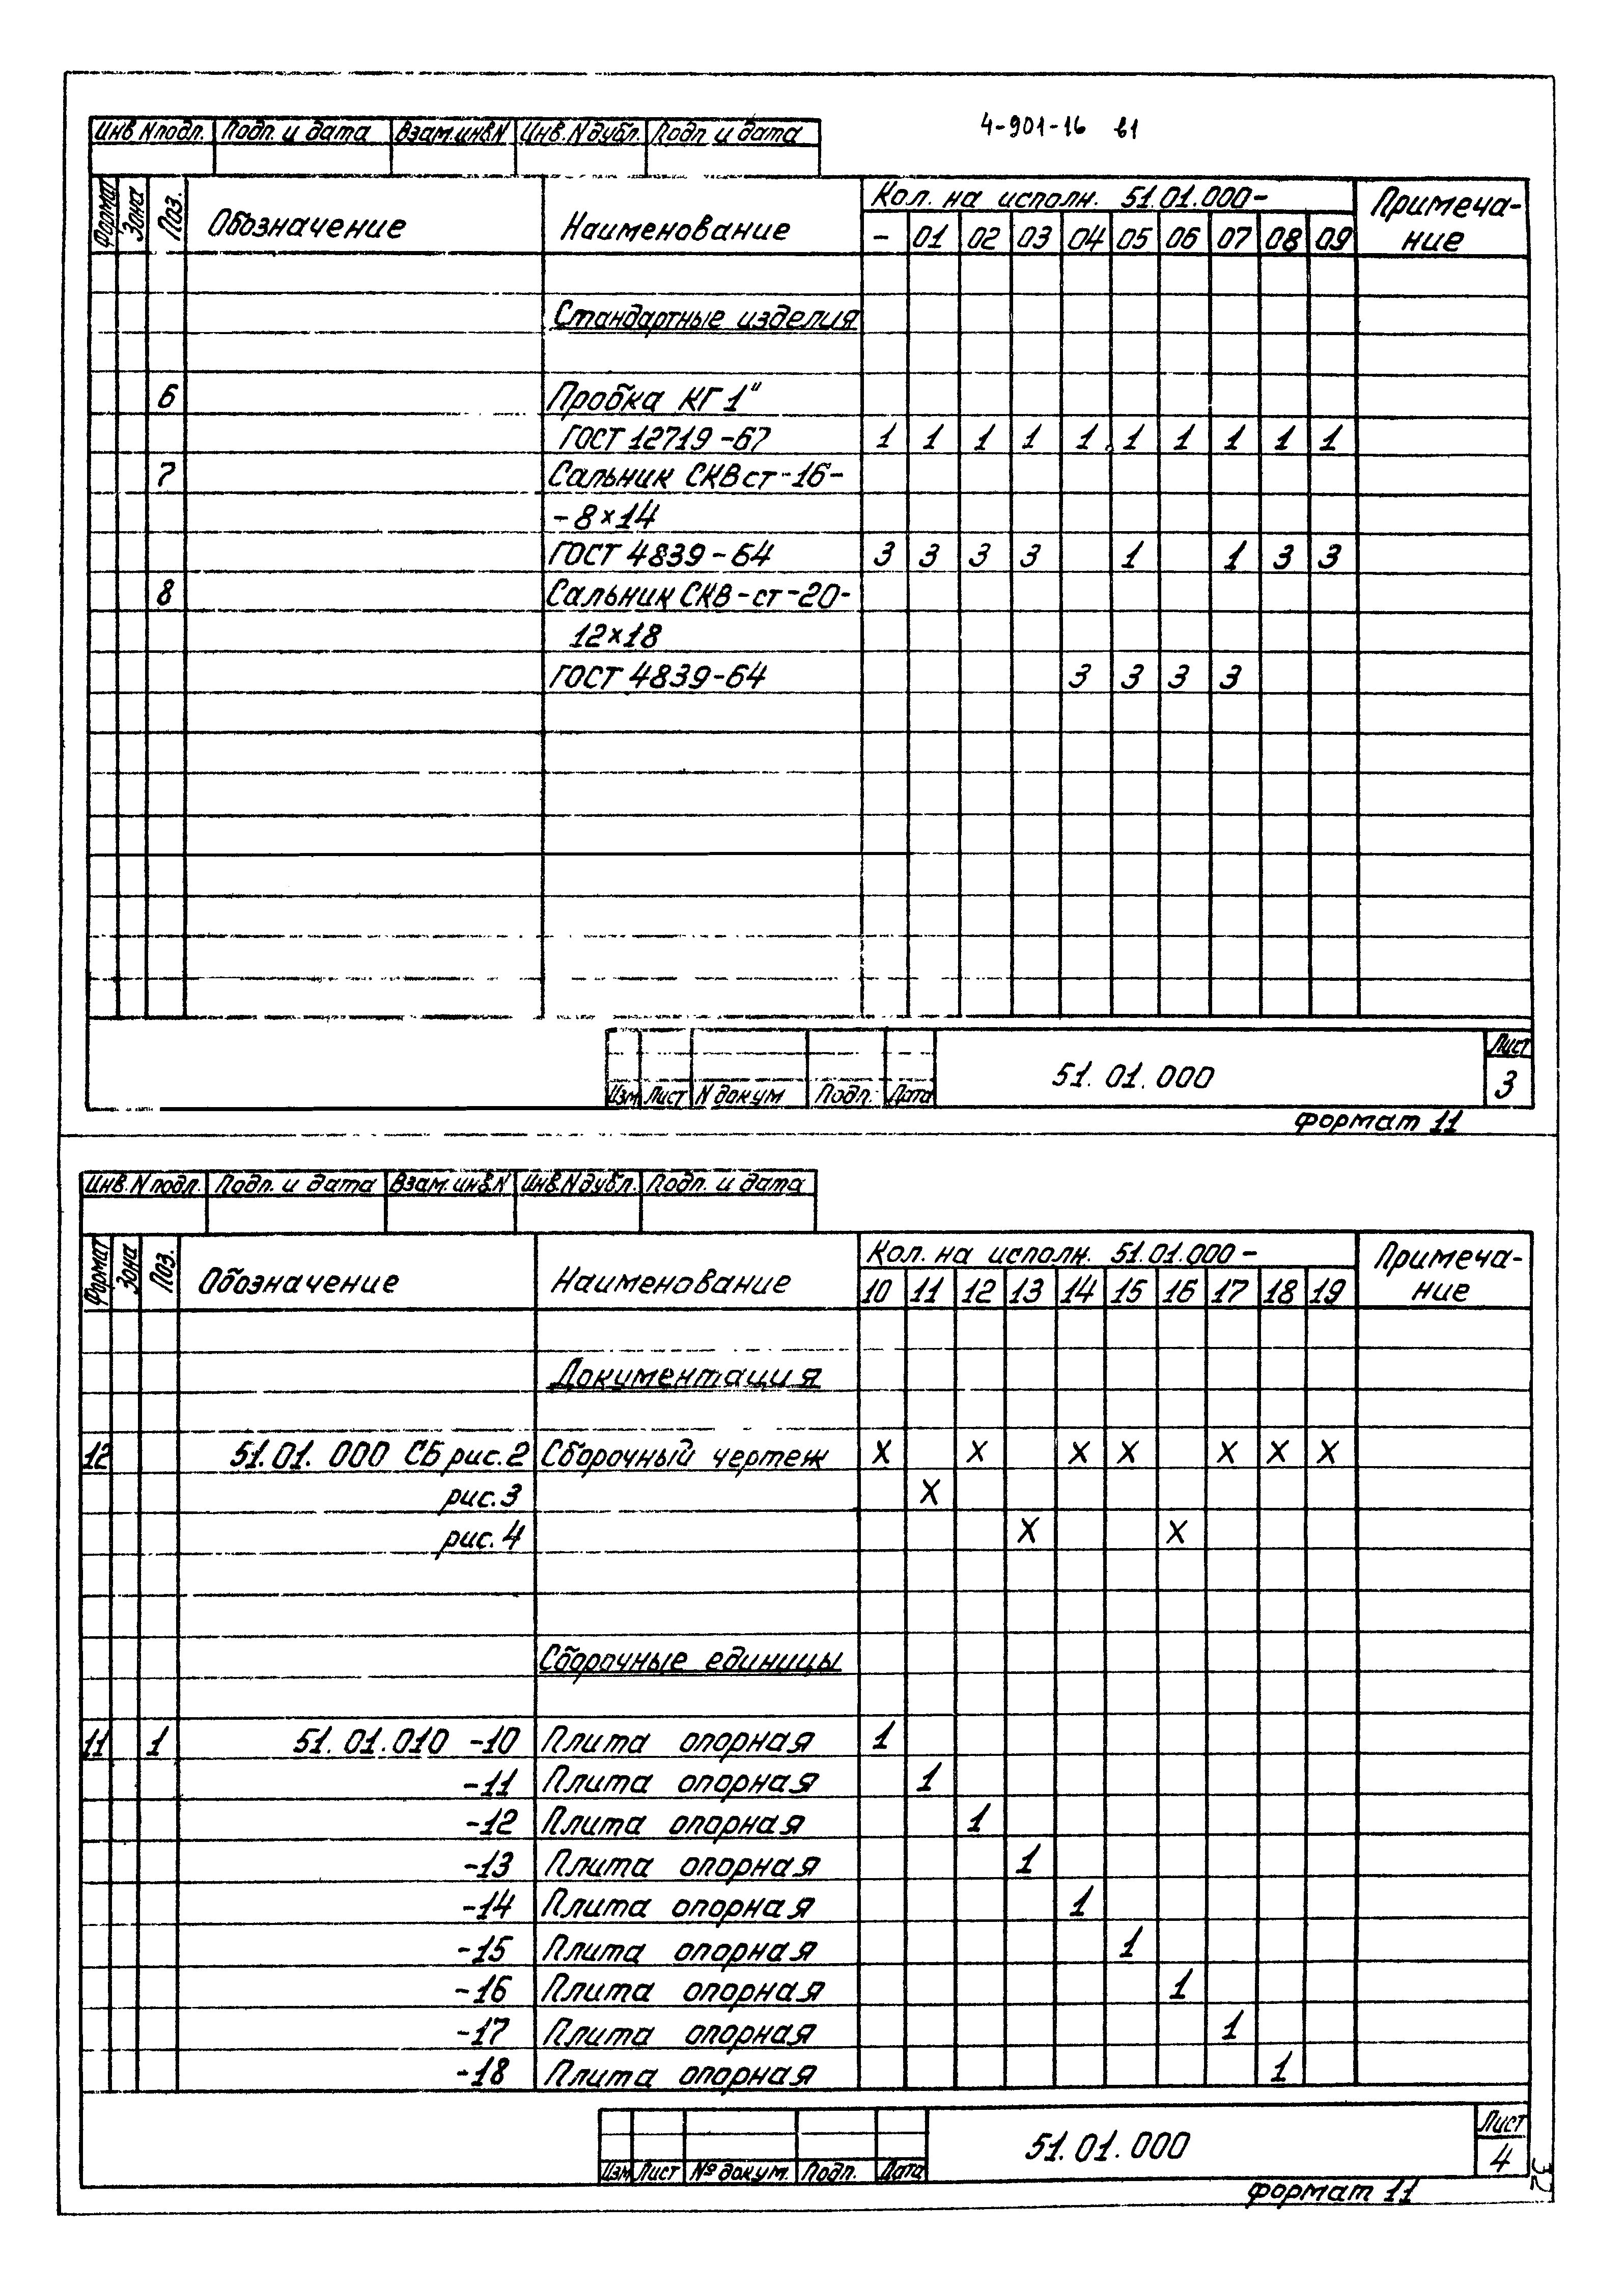 4-901-16 в1
Инв.N подл. Подп. и дата Взам.инв.N Инв.N дубл. Подп и дата
Формат Зона Поз. Обозначение Наименование Кол. на исполн. 51.01.000- Примеча-
- 01 02 03 04 05 06 07 08 09 ние
Стандартные изделия
6 Пробка КГ 1"
ГОСТ 12719-67 1 1 1 1 1 1 1 1 1 1
7 Сальник СКВ ст-16-
-8×14
ГОСТ 4839-64 3 3 3 3 1 1 3 3
8 Сальник СКВ-ст-20-
12×18
ГОСТ 4839-64 3 3 3 3
51.01.000 Лист
Изм Лист N докум Подп. Дата 3
Формат 11
Инв.N подл. Подп. и дата Взам.инв.N Инв.N дубл. Подп. и дата
Формат Зона Поз. Обозначение Наименование Кол. на исполн. 51.01.000- Примеча-
10 11 12 13 14 15 16 17 18 19 ние
Документация
12 51.01.000 СБ рис.2 Сборочный чертеж X X X X X X X
рис.3 X
рис.4 X X
Сборочные единицы
11 1 51.01.010 -10 Плита опорная 1
-11 Плита опорная 1
-12 Плита опорная 1
-13 Плита опорная 1
-14 Плита опорная 1
-15 Плита опорная 1
-16 Плита опорная 1
-17 Плита опорная 1
-18 Плита опорная 1
51.01.000 Лист
Изм Лист № докум. Подп. Дата 4
Формат 11
32